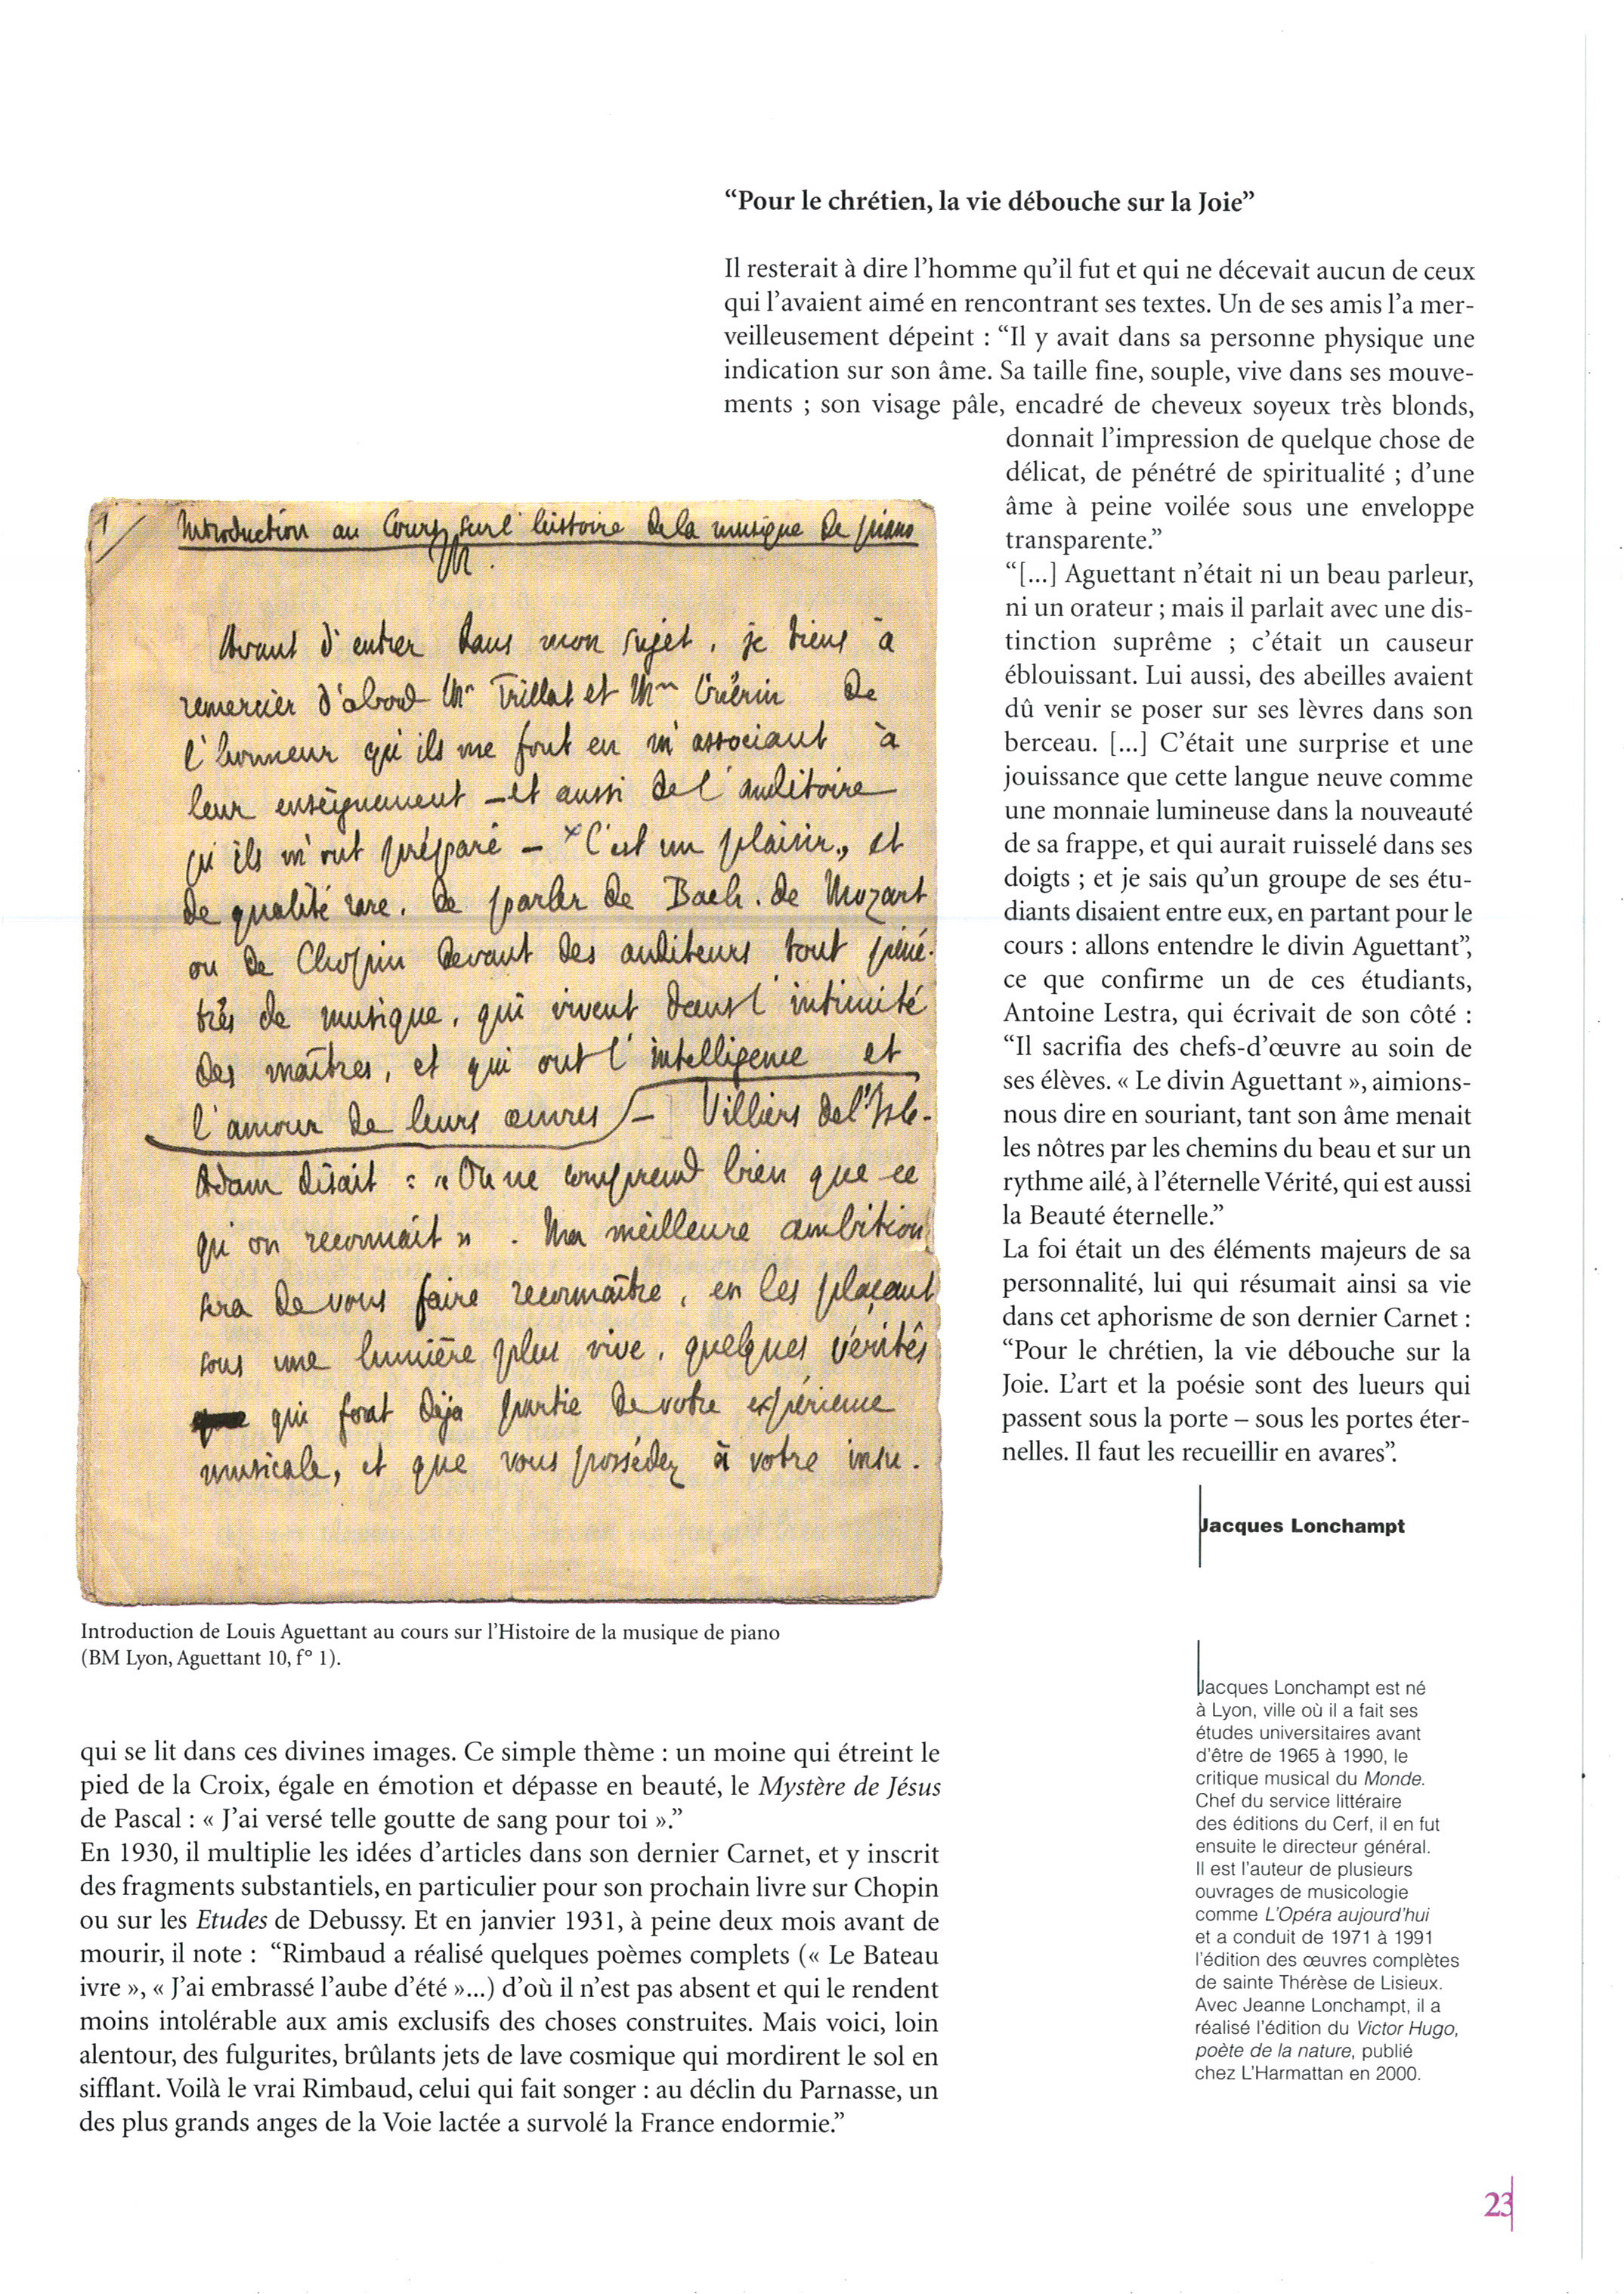 qui se lit dans ces divines images. Ce simple thème : un moine qui étreint le
pied de la Croix, égale en émotion et dépasse en beauté, le Mystère de Jésus
de Pascal : « J’ai versé telle goutte de sang pour toi ».”
En 1930, il multiplie les idées d’articles dans son dernier Carnet, et y inscrit
des fragments substantiels, en particulier pour son prochain livre sur Chopin
ou sur les Etudes de Debussy. Et en janvier 1931, à peine deux mois avant de
mourir, il note : “Rimbaud a réalisé quelques poèmes complets (« Le Bateau
ivre », « J’ai embrassé l’aube d’été »...) d’où il n’est pas absent et qui le rendent
moins intolérable aux amis exclusifs des choses construites. Mais voici, loin
alentour, des fulgurites, brûlants jets de lave cosmique qui mordirent le sol en
sifflant. Voilà le vrai Rimbaud, celui qui fait songer : au déclin du Parnasse, un
des plus grands anges de la Voie lactée a survolé la France endormie.”
“Pour le chrétien, la vie débouche sur la Joie”
Il resterait à dire l’homme qu’il fut et qui ne décevait aucun de ceux
qui l’avaient aimé en rencontrant ses textes. Un de ses amis l’a mer-
veilleusement dépeint : “Il y avait dans sa personne physique une
indication sur son âme. Sa taille fine, souple, vive dans ses mouve-
ments ; son visage pâle, encadré de cheveux soyeux très blonds,
donnait l’impression de quelque chose de
délicat, de pénétré de spiritualité ; d’une
âme à peine voilée sous une enveloppe
transparente.”
“[...] Aguettant n’était ni un beau parleur,
ni un orateur ; mais il parlait avec une dis-
tinction suprême ; c’était un causeur
éblouissant. Lui aussi, des abeilles avaient
dû venir se poser sur ses lèvres dans son
berceau. [...] C’était une surprise et une
jouissance que cette langue neuve comme
une monnaie lumineuse dans la nouveauté
de sa frappe, et qui aurait ruisselé dans ses
doigts ; et je sais qu’un groupe de ses étu-
diants disaient entre eux, en partant pour le
cours : allons entendre le divin Aguettant”,
ce que confirme un de ces étudiants,
Antoine Lestra, qui écrivait de son côté :
“Il sacrifia des chefs-d’œuvre au soin de
ses élèves. « Le divin Aguettant », aimions-
nous dire en souriant, tant son âme menait
les nôtres par les chemins du beau et sur un
rythme ailé, à l’éternelle Vérité, qui est aussi
la Beauté éternelle.”
La foi était un des éléments majeurs de sa
personnalité, lui qui résumait ainsi sa vie
dans cet aphorisme de son dernier Carnet :
“Pour le chrétien, la vie débouche sur la
Joie. L’art et la poésie sont des lueurs qui
passent sous la porte – sous les portes éter-
nelles. Il faut les recueillir en avares”.
Jacques Lonchampt
1/ Introduction au Cours sur l'histoire de la musique de piano
Avant d'entrer dans mon sujet, je tiens à
remercier d'abord Mr Trillat et Mme Guérin de
l'honneur qu'ils me font en m'associant à
leur enseignement – et aussi de l'auditoire
qu'ils m'ont préparé – C'est un plaisir, et
de qualité rare, de parler de Bach, de Mozart
ou de Chopin devant des auditeurs tout péné-
trés de musique, qui vivent dans l'intimité
des maîtres, et qui ont l'intelligence et
l'amour de leurs œuvres – Villiers de l'Isle-
Adam disait : « On ne comprend bien que ce
qu'on reconnait ». Ma meilleure ambition
sera de vous faire reconnaître, en les plaçant
sous une lumière plus vive, quelques vérités
qui font déjà partie de votre expérience
musicale, et que vous possédez à votre insu.
Introduction de Louis Aguettant au cours sur l’Histoire de la musique de piano
(BM Lyon, Aguettant 10, f° 1).
Jacques Lonchampt est né
à Lyon, ville où il a fait ses
études universitaires avant
d’être de 1965 à 1990, le
critique musical du Monde.
Chef du service littéraire
des éditions du Cerf, il en fut
ensuite le directeur général.
Il est l’auteur de plusieurs
ouvrages de musicologie
comme L’Opéra aujourd’hui
et a conduit de 1971 à 1991
l’édition des œuvres complètes
de sainte Thérèse de Lisieux.
Avec Jeanne Lonchampt, il a
réalisé l’édition du Victor Hugo,
poète de la nature, publié
chez L’Harmattan en 2000.
23